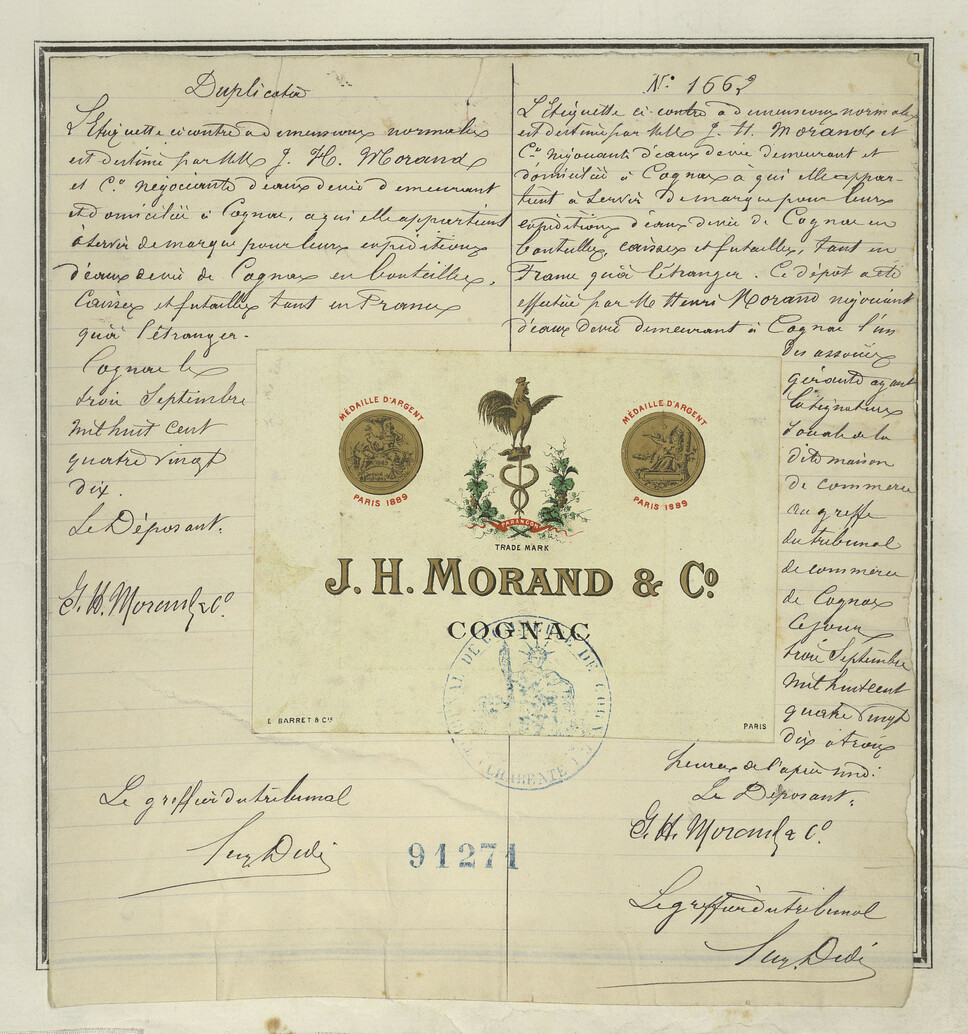 Duplicata
L'Étiquette ci contre a dimensions normales
est destiné par MM J. H. Morand
et Co négociants d'eaux de vie demeurant
et domiciliés à Cognac, a qui elle appartient
à servir de marque pour leurs expéditions
d'eaux de vie de Cognac en bouteilles,
Caisses et futailles tant en France
qu'à l'étranger.
Cognac le
trois Septembre
mil huit cent
quatre vingt
dix.
Le Déposant.
J. H. Morand & Co
Le greffier du tribunal
No 1662
L'Etiquette ci-contre a dimensions normales
est destiné par MM J. H. Morand et
Co négociants d'eaux de vie demeurant et
domiciliés à Cognac à qui elle appar-
tient à servir de marque pour leurs
expéditions d'eaux de vie de Cognac en
bouteilles, caisses et futailles, tant en
France qu'à l'étranger. Ce dépôt a été
effectué par M Henri Morand négociant
d'eaux de vie demeurant à Cognac l'un
des associés
gérants ayant
la signature
sociale de la
dite maison
de commerce
au greffe
du tribunal
de commerce
de Cognac
Ce jour
trois Septembre
mil huit cent
quatre vingt
dix à trois
heures de l'après midi.
Le Déposant.
J. H. Morand & Co.
Le greffier du tribunal
MÉDAILLE D'ARGENT
PARIS 1889
MÉDAILLE D'ARGENT
PARIS 1889
PARANGON
TRADE MARK
J. H. MORAND & Co
COGNAC
E. BARRET & Cie
PARIS
TRIBUNAL DE COMMERCE DE COGNAC
CHARENTE
91271